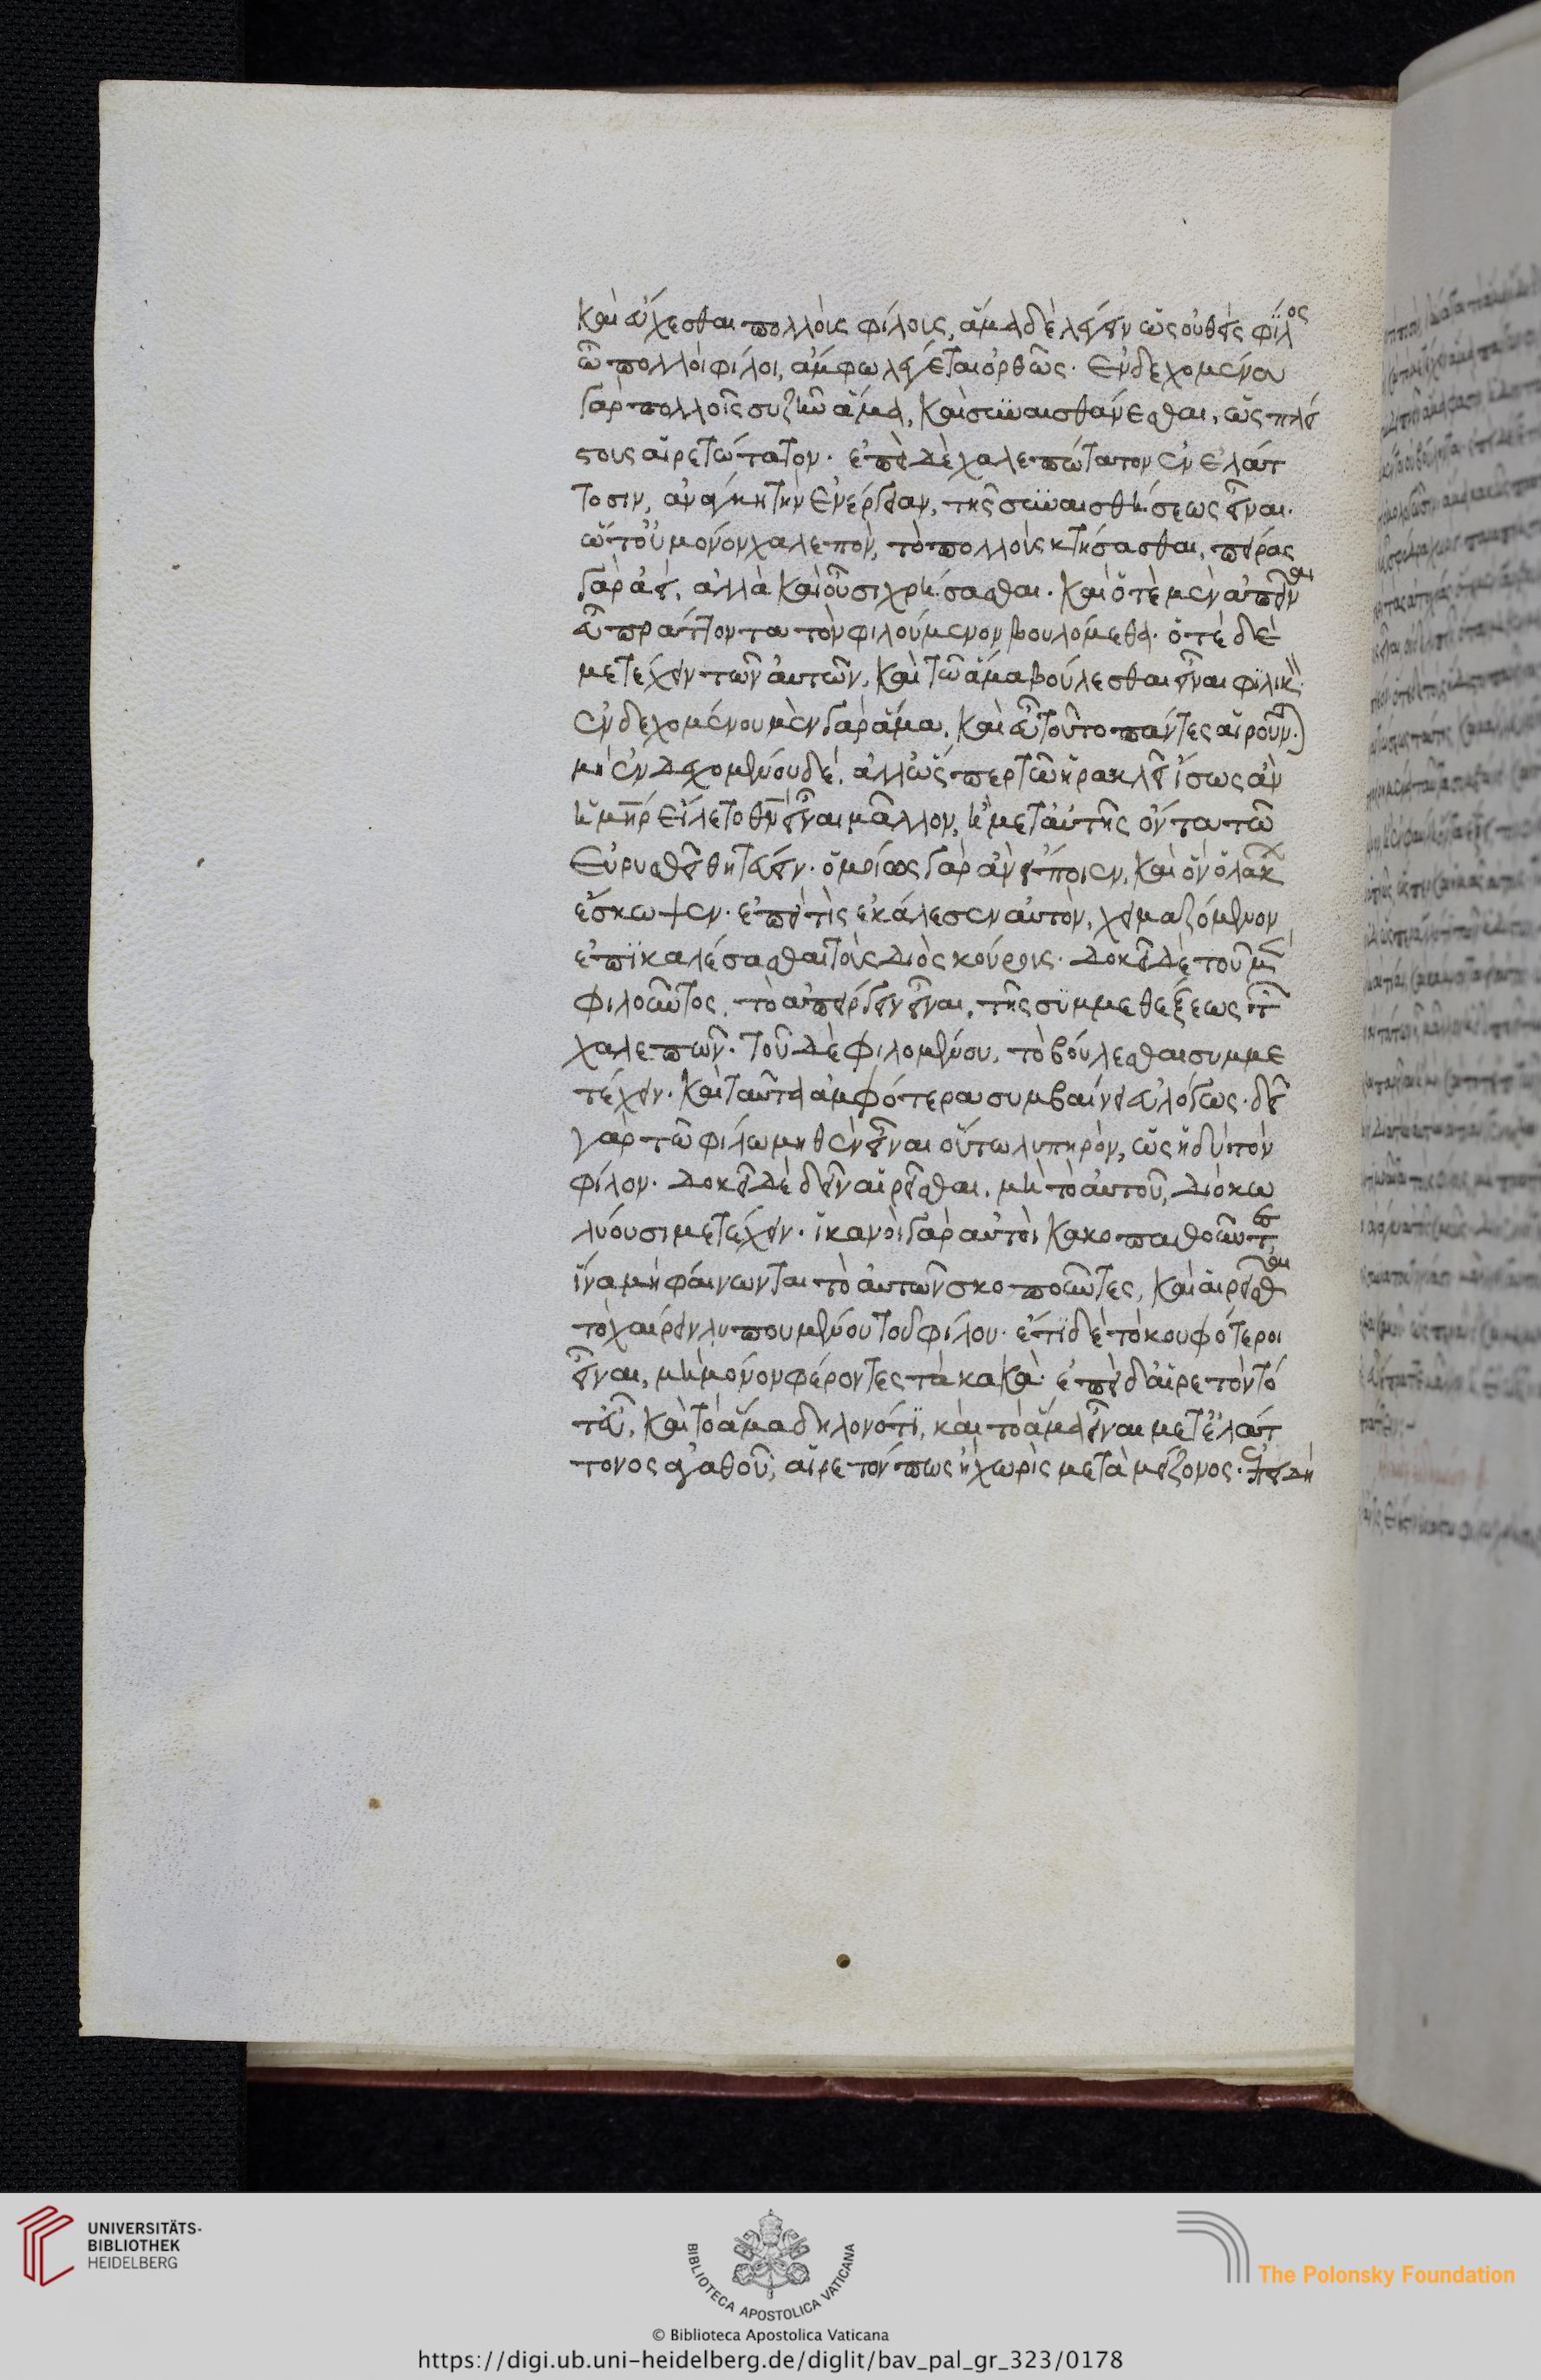 καὶ εὔχεσθαι πολλοὶς φίλοις, ἅμα δὲ λέγειν ὡς οὐθεὶς φίλος
ὧ πολλοὶ φίλοι, ἄμφω λέγεται ὀρθῶς. ἐνδεχομένου
γὰρ πολλοῖς συζῆν ἅμα, καὶ συναισθάνεσθαι, ὡς πλεί
στους αἱρετώτατον. ἐπεὶ δὲ χαλεπώτατον ἐν ἐλάτ
τοσιν, ἀνάγκη τὴν ἐνέργειαν, τῆς συναισθήσεως εἶναι.
ὥστ' οὐ μόνον χαλεπὸν, τὸ πολλοὺς κτήσασθαι, πείρας
γὰρ δεῖ, ἀλλὰ καὶ οὖσι χρήσασθαι. καὶ ὁτὲ μὲν ἀπεῖναι
εὖ πράττοντα τὸν φιλούμενον βουλόμεθα. ὁτὲ δὲ
μετέχειν τῶν αὐτῶν, καὶ τῶ ἅμα βούλεσθαι εἶναι φιλικὸν.
ἐνδεχομένου μὲν γὰρ ἅμα, καὶ εὖ τοῦτο πάντες αἱροῦνται.
μὴ ἐνδεχομένου δὲ, ἀλλ' ὥσπερ τῶ ἡρακλεῖ ἴσως ἂν
ἡ μὴρ εἵλετο θν̄ εἶναι μᾶλλον, ἢ μετ' αὐτῆς ὄντα τῶ
Εὐρυσθεῖ θητεύειν. ὁμοίως γὰρ ἂν εἴποιεν, καὶ ὃν ὁ λάκων
ἔσκωψεν. ἐπεί τις ἐκάλεσεν αὐτὸν, χειμαζόμενον
ἐπικαλέσασθαι τοὺς Διὸς κούρους. δοκεῖ δὲ τοῦ μὲν
φιλοῦντος, τὸ ἀπείργειν εἶναι, τῆς συμμεθέξεως τῶν
χαλεπῶν. τοῦ δὲ φιλομένου, τὸ βούλεσθαι συμμε
τέχειν. καὶ ταῦτα ἀμφότερα συμβαίνει εὐλόγως. δεῖ
γὰρ τῶ φίλω μηθὲν εἶναι οὕτω λυπηρὸν, ὡς ἡδὺ τὸν
φίλον. δοκεῖ δὲ δεῖν αἱρεῖσθαι, μὴ τὸ αὐτοῦ, διὸ κω
λύουσι μετέχειν. ἱκανοὶ γὰρ αὐτοὶ κακοπαθοῦντες
ἵνα μὴ φαίνωνται τὸ αὐτῶν σκοποῦντες, καὶ αἱρεῖσθαι
τὸ χαίρειν λυπουμένου τοῦ φίλου. ἔτι δὲ τὸ κουφότεροι
εἶναι, μὴ μόνον φέροντες τὰ κακὰ. ἐπεὶ δ' αἱρετὸν τό
τ' εὖ, καὶ τὸ ἅμα δηλονότι, καὶ τὸ ἅμα εἶναι μετ' ἐλάτ
τονος ἀγαθοῦ, αἱρετόν πως ἢ χωρὶς μετὰ μείζονος. ἐπειδὴ
UNIVERSITÄTS-
BIBLIOTHEK
HEIDELBERG
BIBLIOTECA APOSTOLICA VATICANA
The Polonsky Foundation
© Biblioteca Apostolica Vaticana
https://digi.ub.uni-heidelberg.de/diglit/bav_pal_gr_323/0178